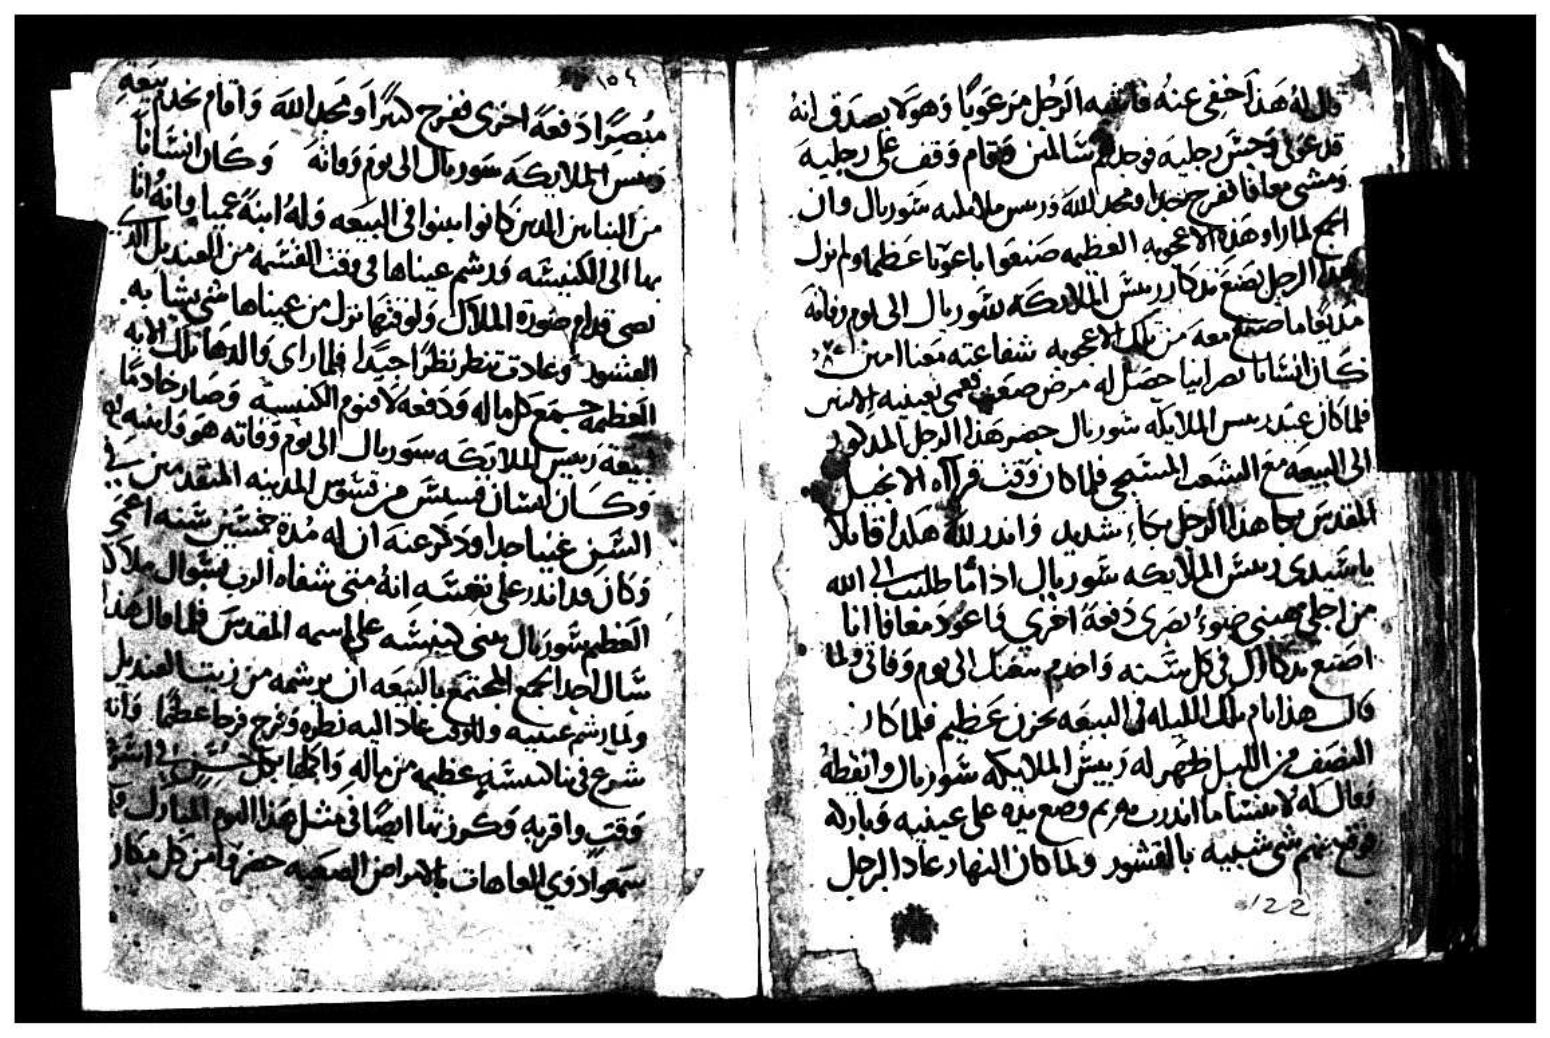 قال له هذا اخفي عنه فانتبه الرجل مرعوبًا وهو لا يصدق انه
قد عوفى وجس رجليه فوجدهم سالمين فقام وقف على رجليه
ومشى معافا ففرح جدا ومجد الله وريس ملايكيه سوريال وان
الجمع لما راو هذه الاعجوبه العظيمه صنعوا باعوثا عظيما ولم نزل
هذا الرجل يصنع تذكار رييس الملايكه سوريال الى يوم وفاته
مذيعًا ما صنع معه من تلك الاعجوبه شفاعته معنا امين
كان انسانا نصرانيا حصل له مرض صعب فعمى بعينيه الاتنين
فلما كان عيد رييس الملايكه سوريال حضر هذا الرجل المذكور
الى البيعه مع الشعب المسيحى فلما كان وقت قرااه الانجيل
المقدس بكا هذا الرجل بكاء شديد وانذر لله هكذا قايلا
ياسيدى رييس الملايكه سوريال اذا ما طلبت الى الله
من اجلى يهبنى ضوء بصرى دفعة اخرى فاعود معافا انا
اصنع تذكارك فى كل سنه واخدم بيعتك الى يوم وفاتى ولما
قال هذا نام تلك الليله فى البيعه بحزن عظيم فلما كان
النصف من الليل ظهر له رييس الملايكه سوريال وايقظه
وقال له لا تنسا ما انذرت به ثم وضع يده على عينيه وباركه
فوقع منهم شى شبيه بالقشور ولما كان النهار عاد الرجل
122
١٥٤
مبصرًا دفعة اخرى ففرح كثيرًا ومجد الله واقام يخدم بيعة
رييس الملايكه سوريال الى يوم وفاته وكان انسانا
من الناس الذين كانوا يبنوا فى البيعه وله ابنة عميا وانه اتا
بها الى الكنيسه ورشم عيناها فى وقت القسمه من القنديل الذى
يضى قدام صورة الملاك ولوقتها نزل من عيناها شى يشابه
القشور وعادت تنظر نظرًا جيدًا فلما راى والدها تلك الايه
العظيمه جمع كل ماله ودفعه لاقنوم الكنيسه وصار خادمًا
بيعة رييس الملايكه سوريال الى يوم وفاته هو وابنته
وكان انسان قسيس من قسوس المدينه المتقدمين فى
السن غنيا جدا وذكر عنه ان له مدة خمسين سنه اعمى
وكان قد انذر على نفسه انه متى شفاه الرب بسوال ملاكه
العظيم سوريال يبنى كنيسه على اسمه المقدس فلما قال هذا
سال احد الجمع المجتمع بالبيعه ان يرشمه من زيت القنديل
ولما رشم عينيه وللوقت عاد اليه نظره وفرح فرحا عظيمًا وانه
شرع فى بنا كنيسة عظيمه من ماله واكملها بكل حسن فى اسرع
وقت واقربه وكرزتها ايضًا فى مثل هذا اليوم المبارك
سمعوا ذوي العاهات بالامراض الصعبه حضروا من كل مكان